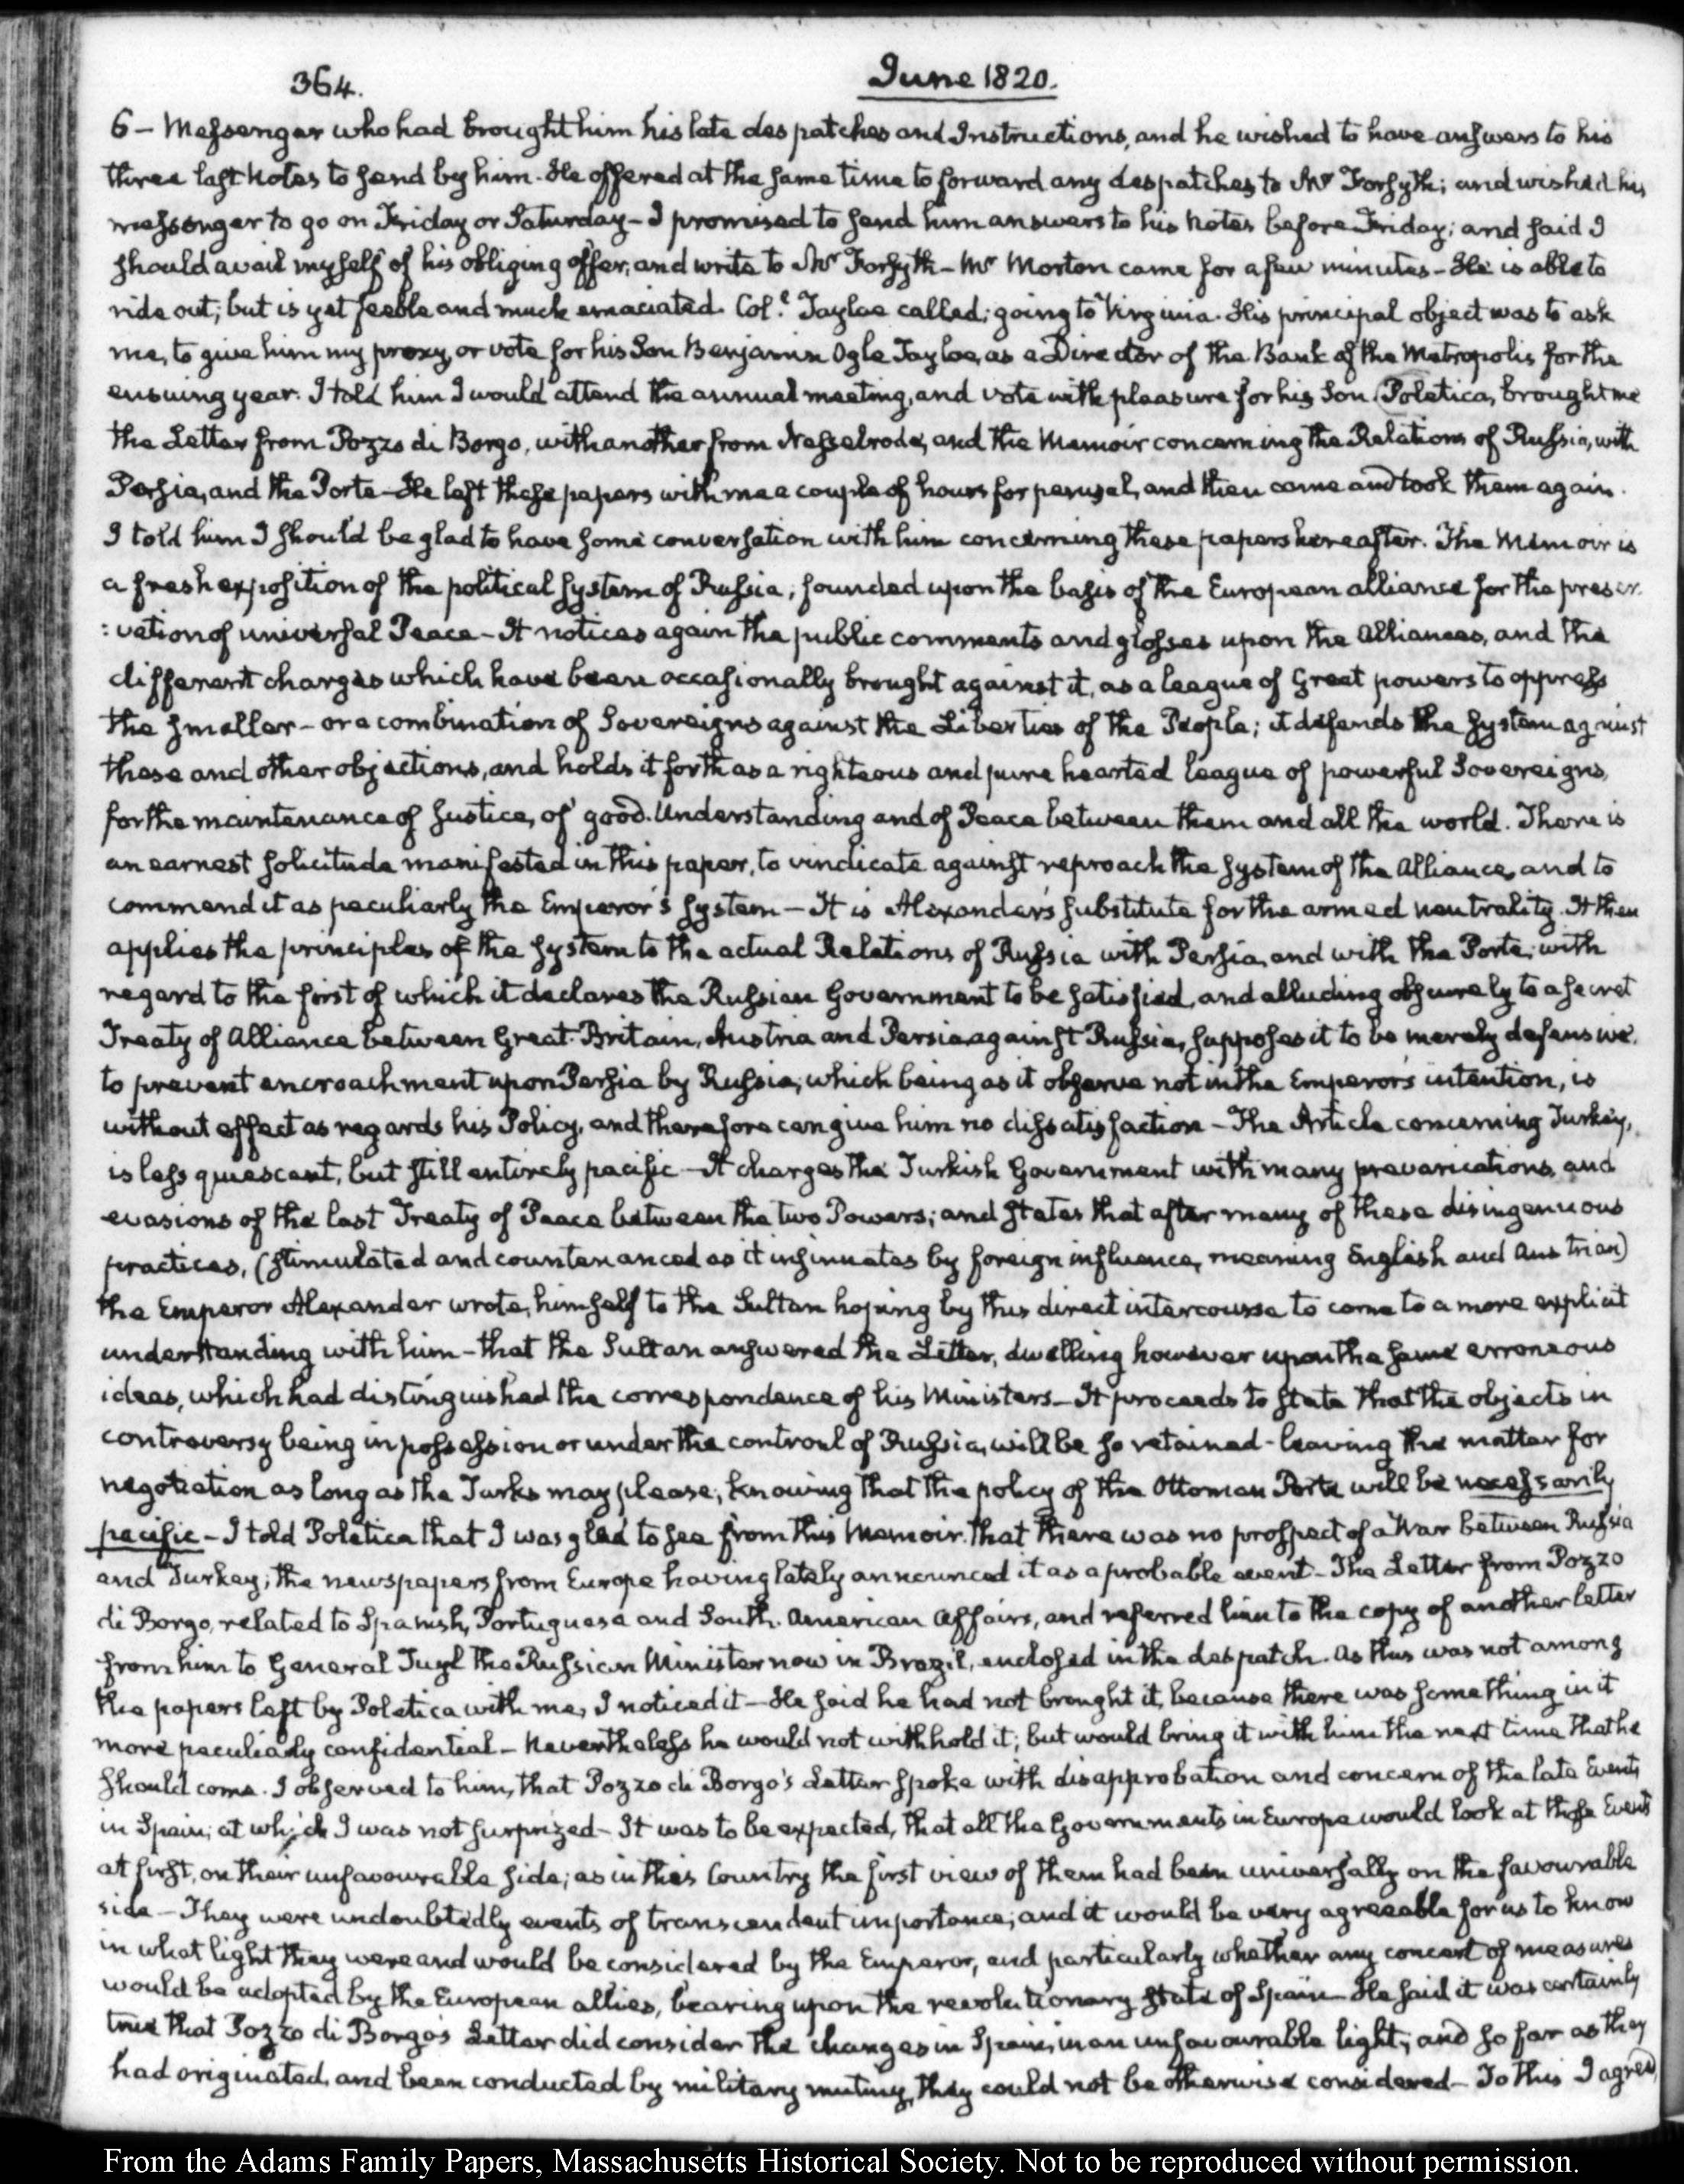 364.
June 1820.
6 – Messenger who had brought him his late despatches and Instructions, and he wished to have answers to his
three last Notes to send by him. He offered at the same time to forward any despatches to Mr Forsyth; and wished his
messenger to go on Friday or Saturday – I promised to send him answers to his Notes before Friday; and said I
should avail myself of his obliging offer, and write to Mr Forsyth – Mr Morton came for a few minutes – He is able to
ride out; but is yet feeble and much emaciated. Col.l Tayloe called; going to Virginia. His principal object was to ask
me, to give him my proxy, or vote for his Son Benjamin Ogle Tayloe, as a Director of the Bank of the Metropolis for the
ensuing year. I told him I would attend the annual meeting, and vote with pleasure for his Son. Poletica, brought me
the Letter from Pozzo di Borgo, with another from Nesselrode, and the Memoir concerning the Relations of Russia, with
Persia, and the Porte – He left these papers with me a couple of hours for perusal, and then came and took them again.
I told him I should be glad to have some conversation with him concerning these papers hereafter. The Memoir is
a fresh exposition of the political system of Russia; founded upon the basis of the European alliance for the preser-
:vation of universal Peace – It notices again the public comments and glosses upon the Alliances, and the
different charges which have been occasionally brought against it, as a league of Great powers to oppress
the smaller – or a combination of Sovereigns against the Liberties of the People; it defends the system against
these and other objections, and holds it forth as a righteous and pure hearted league of powerful Sovereigns,
for the maintenance of Justice, of good Understanding and of Peace between them and all the world. There is
an earnest solicitude manifested in this paper, to vindicate against reproach the system of the Alliance, and to
commend it as peculiarly the Emperor's system – It is Alexander's substitute for the armed neutrality. It then
applies the principles of the system to the actual Relations of Russia with Persia, and with the Porte; with
regard to the first of which it declares the Russian Government to be satisfied, and alluding obscurely to a secret
Treaty of Alliance between Great-Britain, Austria and Persia, against Russia, supposes it to be merely defensive.
to prevent encroachment upon Persia by Russia, which being as it observe not in the Emperor's intention, is
without effect as regards his Policy, and therefore can give him no dissatisfaction – The Article concerning Turkey,
is less quiescent, but still entirely pacific – It charges the Turkish Government with many prevarications, and
evasions of the last Treaty of Peace between the two Powers; and states that after many of these disingenuous
practices, (stimulated and countenanced as it insinuates by foreign influence, meaning English and Austrian)
the Emperor Alexander wrote, himself to the Sultan hoping by this direct intercourse to come to a more explicit
understanding with him – that the Sultan answered the Letter, dwelling however upon the same erroneous
ideas, which had distinguished the correspondence of his Ministers – It proceeds to state that the objects in
controversy being in possession or under the controul of Russia, will be so retained – leaving the matter for
negotiation as long as the Turks may please; knowing that the policy of the Ottoman Porte will be necessarily
pacific – I told Poletica that I was glad to see from this Memoir that there was no prospect of a War between Russia
and Turkey; the newspapers from Europe having lately announced it as a probable event – The Letter from Pozzo
di Borgo, related to Spanish, Portuguese and South-American affairs, and referred him to the copy of another letter
from him to General Tuyl the Russian Minister now in Brazil, enclosed in the despatch. As this was not among
the papers left by Poletica with me, I noticed it – He said he had not brought it, because there was something in it
more peculiarly confidential – Nevertheless he would not withhold it; but would bring it with him the next time that he
should come. I observed to him, that Pozzo di Borgo's Letter spoke with disapprobation and concern of the late Events
in Spain; at which I was not surprized – It was to be expected, that all the Governments in Europe would look at those Events
at first, on their unfavourable side; as in this Country the first view of them had been universally on the favourable
side – They were undoubtedly events of transcendent importance; and it would be very agreeable for us to know
in what light they were and would be considered by the Emperor, and particularly whether any concert of measures
would be adopted by the European allies, bearing upon the revolutionary state of Spain – He said it was certainly
true that Pozzo di Borgo's Letter did consider the changes in Spain, in an unfavourable light; and so far as they
had originated, and been conducted by military mutiny, they could not be otherwise considered – To this I agreed,
From the Adams Family Papers, Massachusetts Historical Society. Not to be reproduced without permission.